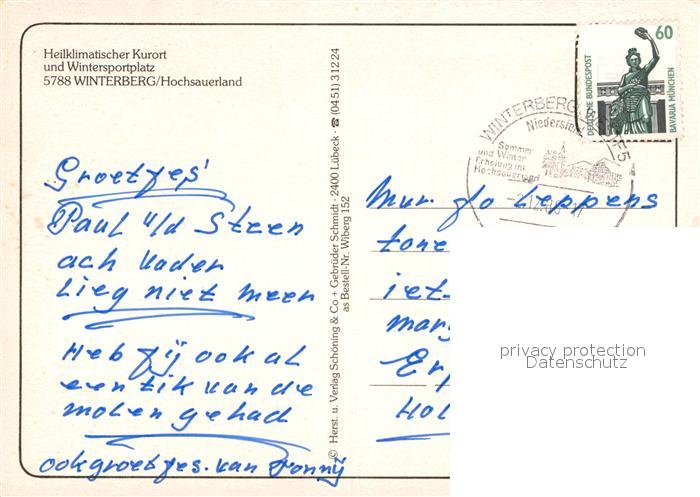 Heilklimatischer Kurort
und Wintersportplatz
5788 WINTERBERG/Hochsauerland
60
DEUTSCHE BUNDESPOST
BAVARIA MÜNCHEN
WINTERBERG
Sommer
und Winter
Erholung im
Hochsauerland
Groetjes
Paul v/d Steen
ach vader
Lieg niet meer
Heb jij ook al
een tik van de
molen gehad
ook groetjes. van Ronny
© Herst. u. Verlag Schöning & Co + Gebrüder Schmidt · 2400 Lübeck · ☎ (0451) 31224
as Bestell-Nr. Wiberg 152
Mur. glo Leppens
tone
iet
mar
Er
Hol
privacy protection
Datenschutz